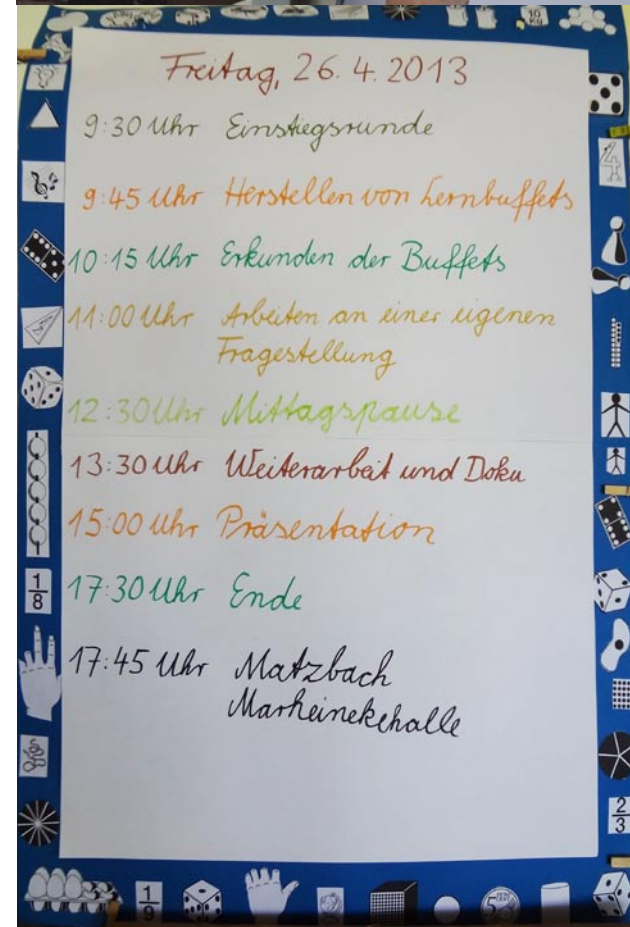 10
Kg
Freitag, 26.4.2013
9:30 Uhr Einstiegsrunde
9:45 Uhr Herstellen von Lernbuffets
10:15 Uhr Erkunden der Buffets
11:00 Uhr Arbeiten an einer eigenen
Fragestellung
12:30 Uhr Mittagspause
13:30 Uhr Weiterarbeit und Doku
15:00 Uhr Präsentation
17:30 Uhr Ende
17:45 Uhr Matzbach
Marheinekehalle
4
1
8
2
3
1
9
5